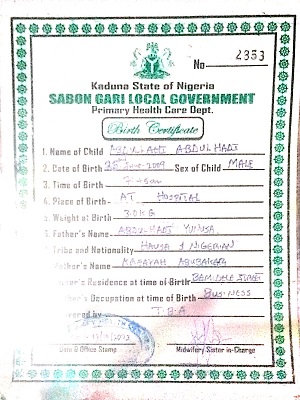 No 2353
Kaduna State of Nigeria
SABON GARI LOCAL GOVERNMENT
Primary Health Care Dept.
Birth Certificate
1. Name of Child ABDULHADI
2. Date of Birth June-2009 Sex of Child MALE
3. Time of Birth
4. Place of Birth AT HOSPITAL
Weight at Birth 3.0KG
Father's Name ABDU-HADI YUNUSA
Tribe and Nationality HAUSA / NIGERIAN
Mother's Name ABUBAKAR
Residence at time of Birth STREET
Father's Occupation at time of Birth BUSINESS
T.B.A
Date & Office Stamp Midwifery Sister in-Charge